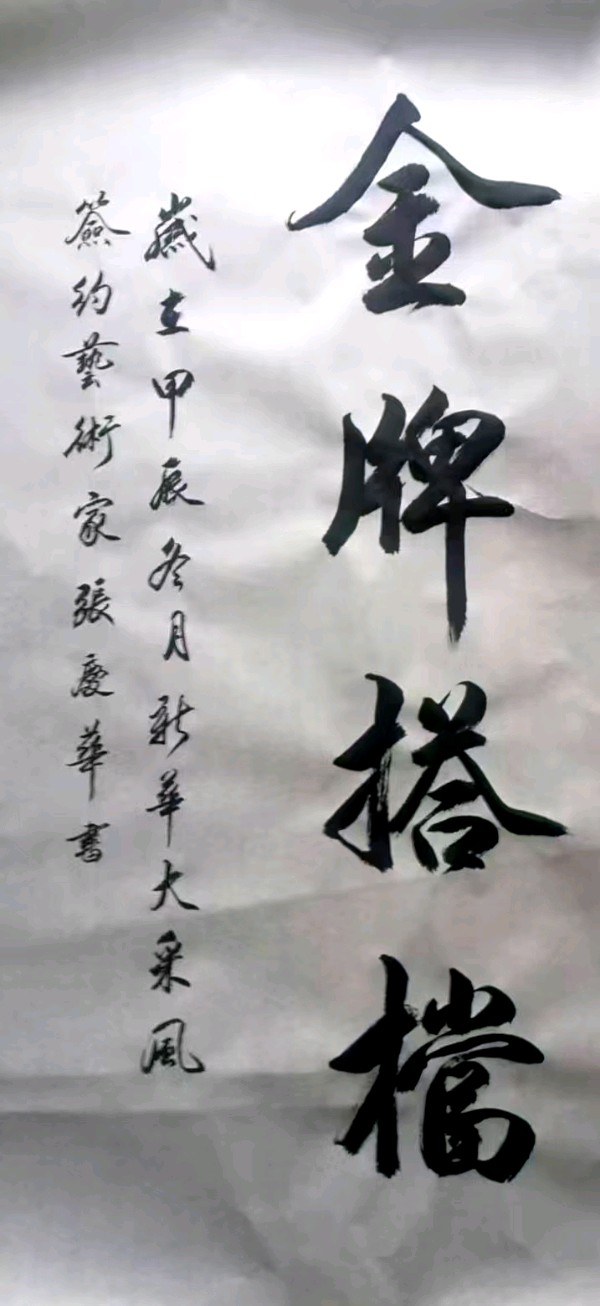 金牌搭檔
歲在甲辰冬月新華大采風
簽約藝術家張慶華書